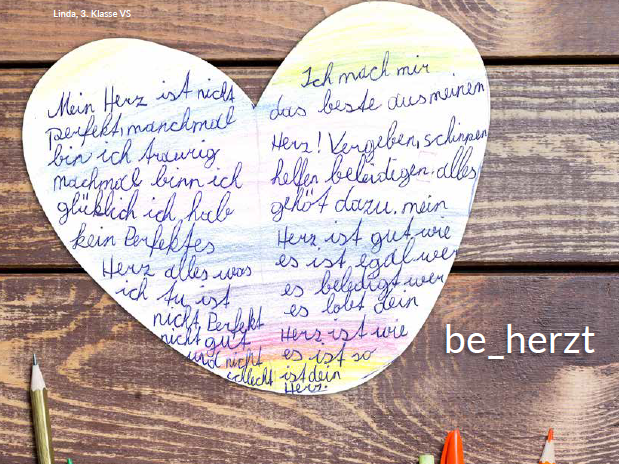 Linda, 3. Klasse VS
Mein Herz ist nicht
perfekt, manchmal
bin ich traurig
machmal binn ich
glücklich ich hab
kein Perfektes
Herz alles was
ich tu ist
nicht Perfekt
nicht gut
und nicht
schlecht
Ich mach mir
das beste aus meinem
Herz! Vergeben, schinpen
helfen beleidigen, alles
gehöt dazu. mein
Herz ist gut wie
es ist egal wer
es beledigt wer
es lobt dein
Herz ist wie
es ist so
ist dein
Herz.
be_herzt